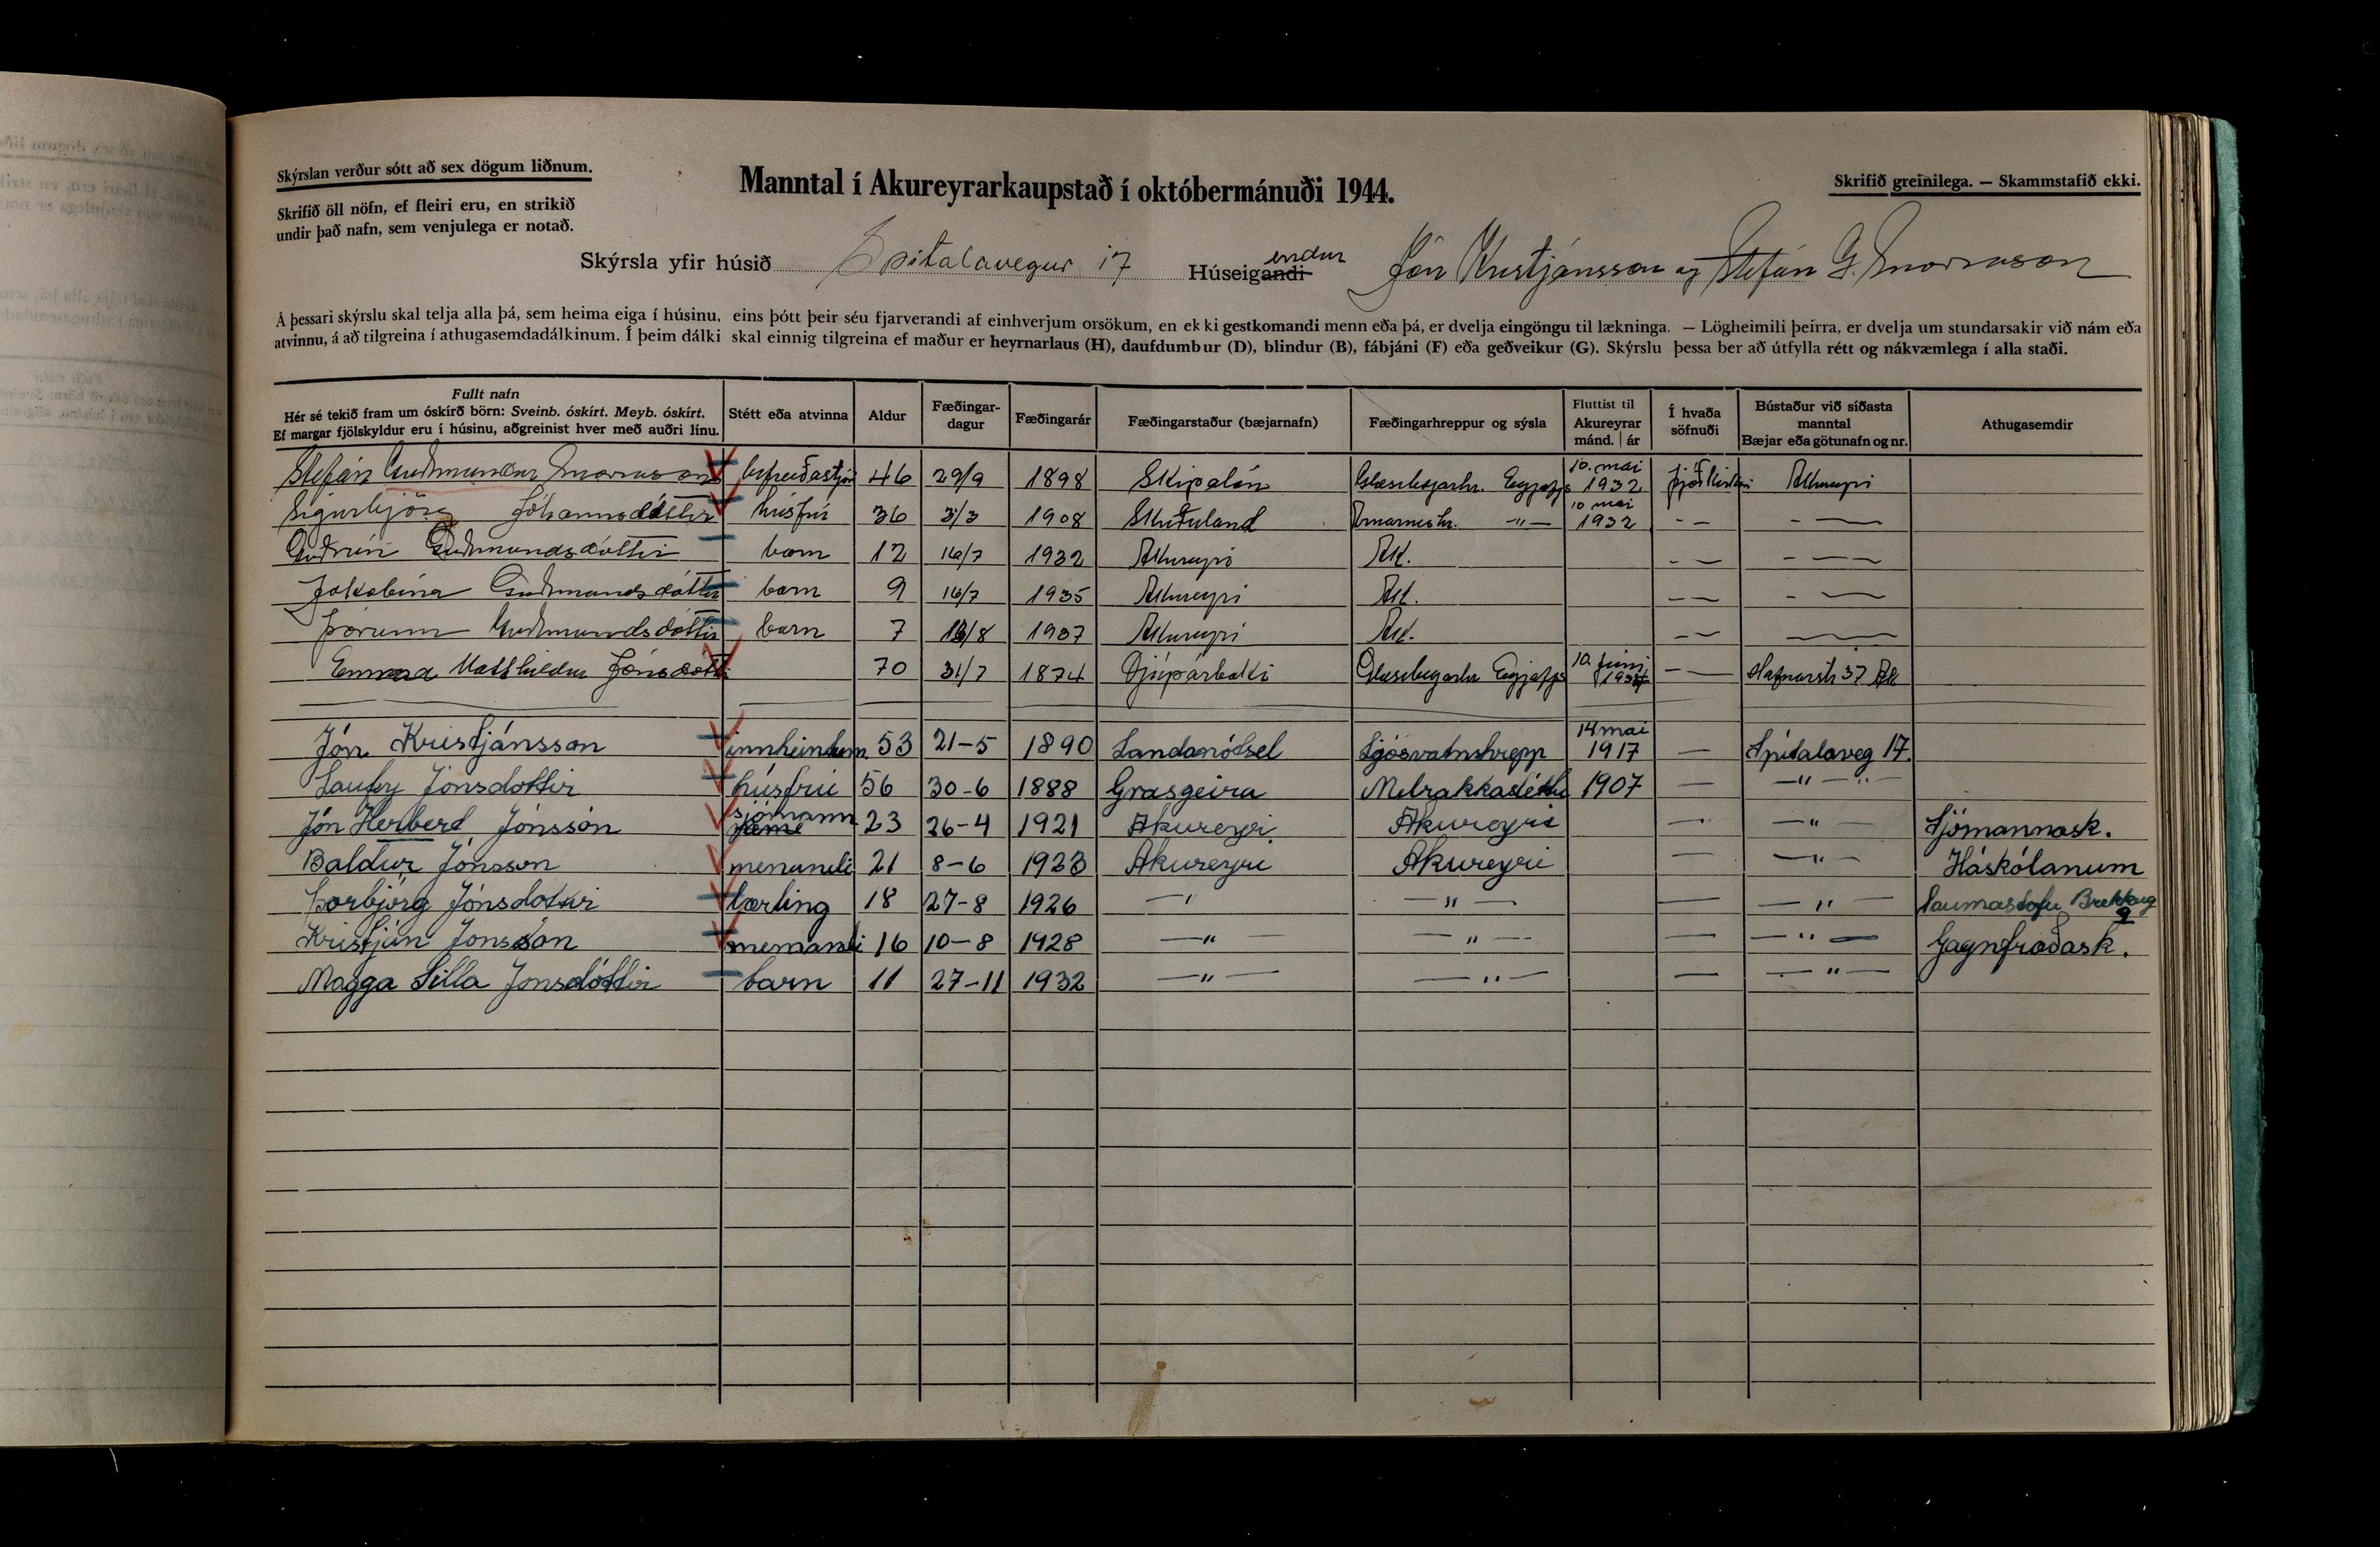 Skýrslan verður sótt að sex dögum liðnum.
Manntal í Akureyrarkaupstað í októbermánuði 1944.
Skrifið greinilega. — Skammstafið ekki.
Skrifið öll nöfn, ef fleiri eru, en strikið
undir það nafn, sem venjulega er notað.
Skýrsla yfir húsið Spítalavegur 17 Húseigandi endur Jón Kristjánsson og Stefán G. Snorrason
Á þessari skýrslu skal telja alla þá, sem heima eiga í húsinu, eins þótt þeir séu fjarverandi af einhverjum orsökum, en ekki gestkomandi menn eða þá, er dvelja eingöngu til lækninga. — Lögheimili þeirra, er dvelja um stundarsakir við nám eða
atvinnu, á að tilgreina í athugasemdadálkinum. Í þeim dálki skal einnig tilgreina ef maður er heyrnarlaus (H), daufdumbur (D), blindur (B), fábjáni (F) eða geðveikur (G). Skýrslu þessa ber að útfylla rétt og nákvæmlega í alla staði.
Fullt nafn
Hér sé tekið fram um óskírð börn: Sveinb. óskírt. Meyb. óskírt.
Ef margar fjölskyldur eru í húsinu, aðgreinist hver með auðri línu.
Stétt eða atvinna
Aldur
Fæðingar-
dagur
Fæðingarár
Fæðingarstaður (bæjarnafn)
Fæðingarhreppur og sýsla
Fluttist til
Akureyrar
mánd. | ár
Í hvaða
söfnuði
Bústaður við síðasta
manntal
Bæjar eða götunafn og nr.
Athugasemdir
Stefán Guðmundur Snorrason 46 29/9 1898 Skipalón Glæsibæjarhr. Eyjafjs 10. maí 1932 Þjóðkirkju Akureyri
Sigurbjörg Jóhannsdóttir húsfrú 36 3/3 1908 Arnarneshr. —"— 10 maí 1932 - — - —
Guðrún Guðmundsdóttir barn 12 16/7 1932 Akureyri Ak. - — - —
Jakobína Guðmundsdóttir barn 9 16/7 1935 Akureyri Ak. - — - —
Þórunn Guðmundsdóttir barn 7 /8 1937 Akureyri Ak. - — —
Emma Matthildur Jónsdóttir 70 31/7 1874 Djúpárbakki Glæsibæjarhr Eyjafjs 10. júní - — Hafnarstr 37 Ak
Jón Kristjánsson innheimtum. 53 21-5 1890 Landamótsel Ljósvatnshrepp 14 maí 1917 — Spítalaveg 17.
Laufey Jónsdottir húsfrú 56 30-6 1888 Grasgeira Melrakkasléttu 1907 — —"—
Jón Herbert Jónsson sjómann 23 26-4 1921 Akureyri Akureyri — —"— Sjómannask.
Baldur Jónsson menandi 21 8-6 1923 Akureyri Akureyri — —"— Háskólanum
Þorbjörg Jónsdottir lærling 18 27-8 1926 —"— —"— — —"— Saumastofu Brekkug 9
Kristján Jónsson nemandi 16 10-8 1928 —"— —"— — —"— Gagnfræðask.
Magga Silla Jónsdóttir barn 11 27-11 1932 —"— —"— — —"—